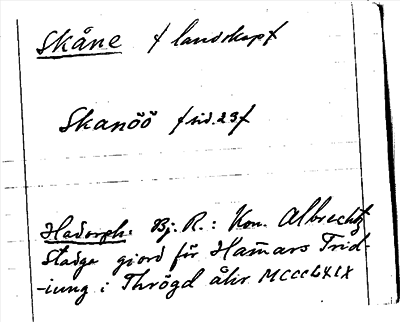 Skåne f landskap f
Skanöö f sid. 23 f
Hadorph. Bj. R.: Kon. Albrechtz
Stadga giord för Hamars Trid-
-iung i Thrögd åhr MCCCLXIX